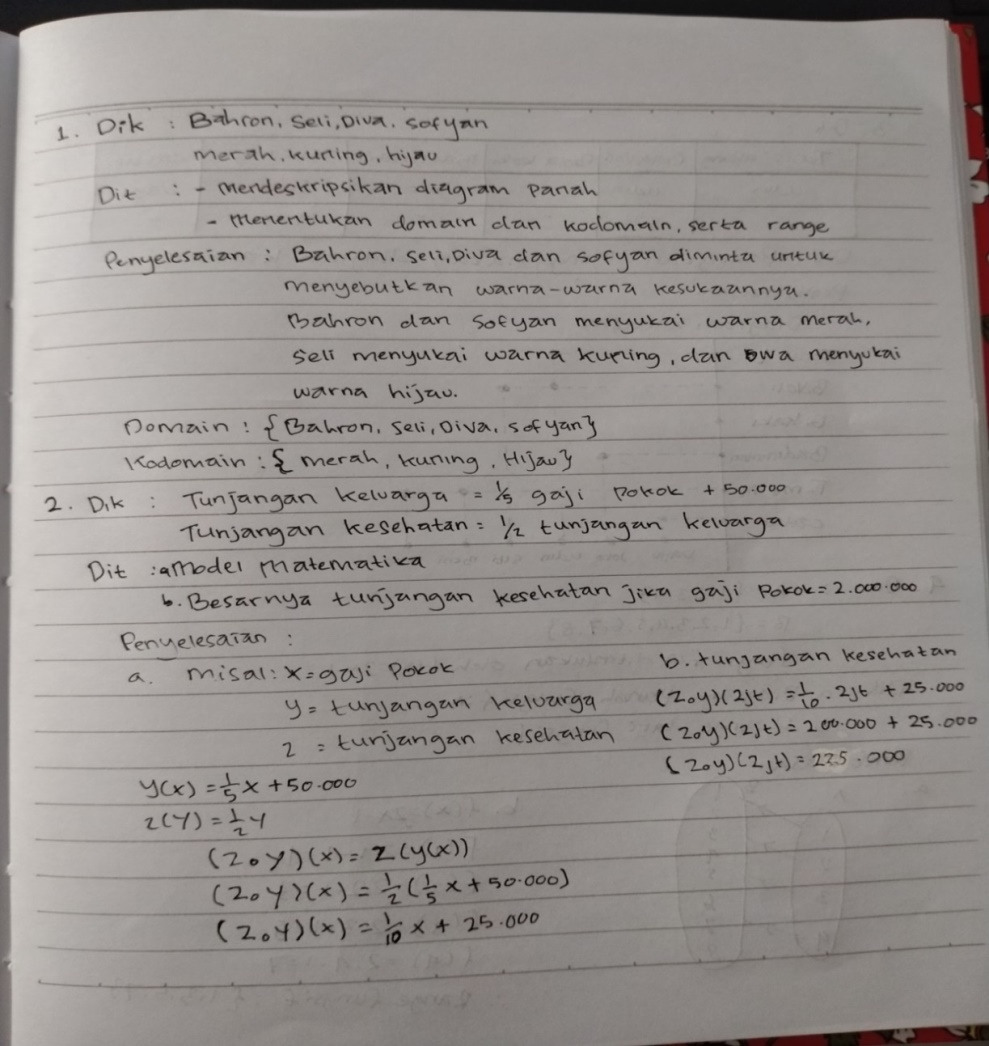 1. Dik : Bahron, Seli, Diva, Sofyan
merah, kuning, hijau
Dit : - Mendeskripsikan diagram panah
- Menentukan domain dan kodomain, serta range
Penyelesaian : Bahron, Seli, Diva dan Sofyan diminta untuk
menyebutkan warna-warna kesukaannya.
Bahron dan Sofyan menyukai warna merah,
Seli menyukai warna kuning, dan Diva menyukai
warna hijau.
Domain : {Bahron, Seli, Diva, Sofyan}
Kodomain : {merah, kuning, Hijau}
2. Dik : Tunjangan keluarga = 1/5 gaji Pokok + 50.000
Tunjangan kesehatan = 1/2 tunjangan keluarga
Dit : a. Model Matematika
b. Besarnya tunjangan kesehatan jika gaji Pokok = 2.000.000
Penyelesaian :
a. misal : x = gaji Pokok
y = tunjangan keluarga
z = tunjangan kesehatan
y(x) = 1/5 x + 50.000
z(y) = 1/2 y
(z∘y)(x) = z(y(x))
(z∘y)(x) = 1/2 (1/5 x + 50.000)
(z∘y)(x) = 1/10 x + 25.000
b. tunjangan kesehatan
(z∘y)(2jt) = 1/10 . 2jt + 25.000
(z∘y)(2jt) = 200.000 + 25.000
(z∘y)(2jt) = 225.000